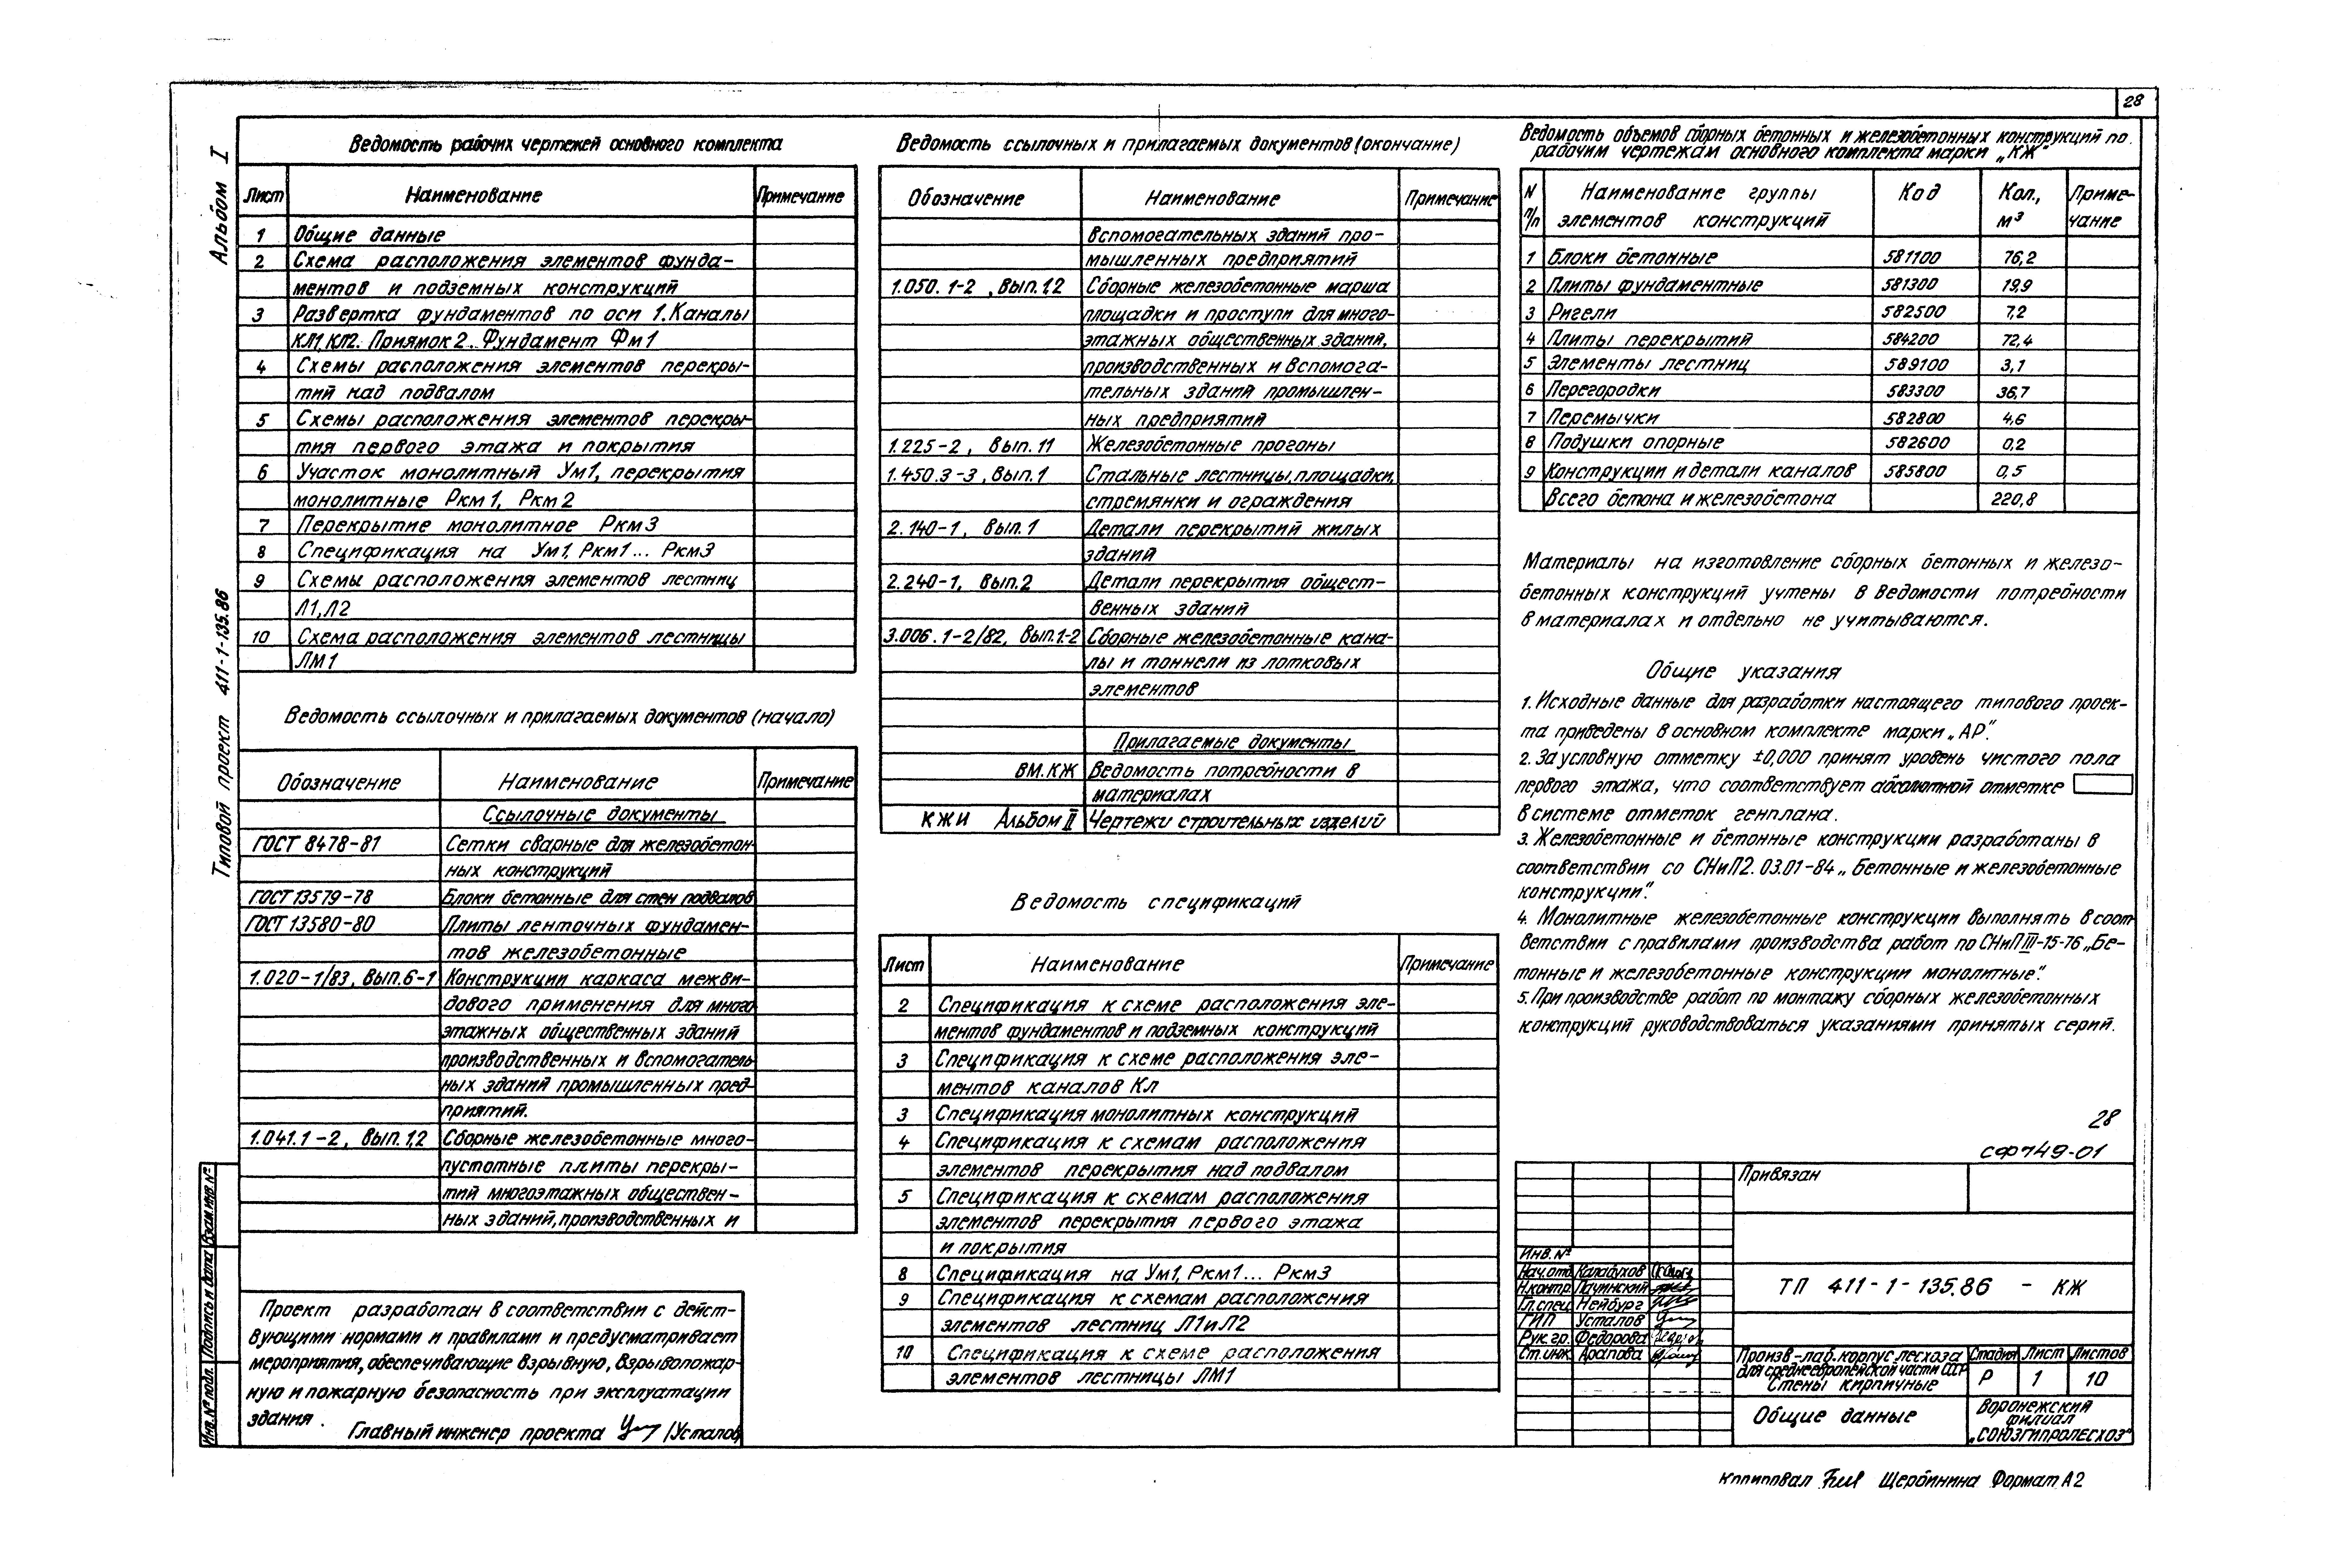 28
Альбом I
Типовой проект 411-1-135.86
Взам.инв.№
Подпись и дата
Инв.№ подл.
Ведомость рабочих чертежей основного комплекта
Лист Наименование Примечание
1 Общие данные
2 Схема расположения элементов фунда-
ментов и подземных конструкций
3 Развертка фундаментов по оси 1. Каналы
КЛ1, КЛ2. Приямок 2. Фундамент Фм1
4 Схемы расположения элементов перекры-
тий над подвалом
5 Схемы расположения элементов перекры-
тия первого этажа и покрытия
6 Участок монолитный Ум1, перекрытия
монолитные Ркм1, Ркм2
7 Перекрытие монолитное Ркм3
8 Спецификация на Ум1, Ркм1... Ркм3
9 Схемы расположения элементов лестниц
Л1, Л2
10 Схема расположения элементов лестницы
ЛМ1
Ведомость ссылочных и прилагаемых документов (начало)
Обозначение Наименование Примечание
Ссылочные документы
ГОСТ 8478-81 Сетки сварные для железобетон-
ных конструкций
ГОСТ 13579-78 Блоки бетонные для стен подвалов
ГОСТ 13580-80 Плиты ленточных фундамен-
тов железобетонные
1.020-1/83, Вып.6-1 Конструкции каркаса межви-
дового применения для много
этажных общественных зданий
производственных и вспомогатель
ных зданий промышленных пред-
приятий.
1.041.1-2, Вып.1,2 Сборные железобетонные много-
пустотные плиты перекры-
тий многоэтажных обществен-
ных зданий, производственных и
Проект разработан в соответствии с дейст-
вующими нормами и правилами и предусматривает
мероприятия, обеспечивающие взрывную, взрывопожар-
ную и пожарную безопасность при эксплуатации
здания.
Главный инженер проекта /Усталов/
Ведомость ссылочных и прилагаемых документов (окончание)
Обозначение Наименование Примечание
вспомогательных зданий про-
мышленных предприятий
1.050.1-2, Вып.1,2 Сборные железобетонные марша
площадки и проступи для много-
этажных общественных зданий,
производственных и вспомога-
тельных зданий промышлен-
ных предприятий
1.225-2, Вып.11 Железобетонные прогоны
1.450.3-3, Вып.1 Стальные лестницы, площадки,
стремянки и ограждения
2.140-1, Вып.1 Детали перекрытий жилых
зданий
2.240-1, Вып.2 Детали перекрытия общест-
венных зданий
3.006.1-2/82, Вып.1-2 Сборные железобетонные кана-
лы и тоннели из лотковых
элементов
Прилагаемые документы
ВМ.КЖ Ведомость потребности в
материалах
КЖИ Альбом II Чертежи строительных изделий
Ведомость спецификаций
Лист Наименование Примечание
2 Спецификация к схеме расположения эле-
ментов фундаментов и подземных конструкций
3 Спецификация к схеме расположения эле-
ментов каналов Кл
3 Спецификация монолитных конструкций
4 Спецификация к схемам расположения
элементов перекрытия над подвалом
5 Спецификация к схемам расположения
элементов перекрытия первого этажа
и покрытия
8 Спецификация на Ум1, Ркм1... Ркм3
9 Спецификация к схемам расположения
элементов лестниц Л1 и Л2
10 Спецификация к схеме расположения
элементов лестницы ЛМ1
Ведомость объемов сборных бетонных и железобетонных конструкций по
рабочим чертежам основного комплекта марки „КЖ"
N п/п Наименование группы элементов конструкций Код Кол., м³ Приме-чание
1 Блоки бетонные 581100 76,2
2 Плиты фундаментные 581300 19,9
3 Ригели 582500 7,2
4 Плиты перекрытий 584200 72,4
5 Элементы лестниц 589100 3,1
6 Перегородки 583300 36,7
7 Перемычки 582800 4,6
8 Подушки опорные 582600 0,2
9 Конструкции и детали каналов 585800 0,5
Всего бетона и железобетона 220,8
Материалы на изготовление сборных бетонных и железо-
бетонных конструкций учтены в ведомости потребности
в материалах и отдельно не учитываются.
Общие указания
1. Исходные данные для разработки настоящего типового проек-
та приведены в основном комплекте марки „АР".
2. За условную отметку ±0,000 принят уровень чистого пола
первого этажа, что соответствует абсолютной отметке
в системе отметок генплана.
3. Железобетонные и бетонные конструкции разработаны в
соответствии со СНиП 2.03.01-84 „Бетонные и железобетонные
конструкции".
4. Монолитные железобетонные конструкции выполнять в соот-
ветствии с правилами производства работ по СНиП III-15-76 „Бе-
тонные и железобетонные конструкции монолитные".
5. При производстве работ по монтажу сборных железобетонных
конструкций руководствоваться указаниями принятых серий.
28
СФ749-01
Привязан
Инв.№
Нач.отд. Калабухов
Н.контр. Пачинский
Гл.спец. Нейбург
ГИП Усталов
Рук.гр. Федорова
Ст.инж. Арапова
ТП 411-1-135.86 - КЖ
Произв-лаб.корпус лесхоза
для среднеевропейской части СССР
Стены кирпичные
Стадия Лист Листов
Р 1 10
Общие данные
Воронежский
филиал
„СОЮЗГИПРОЛЕСХОЗ"
Копировал Щербинина Формат А2